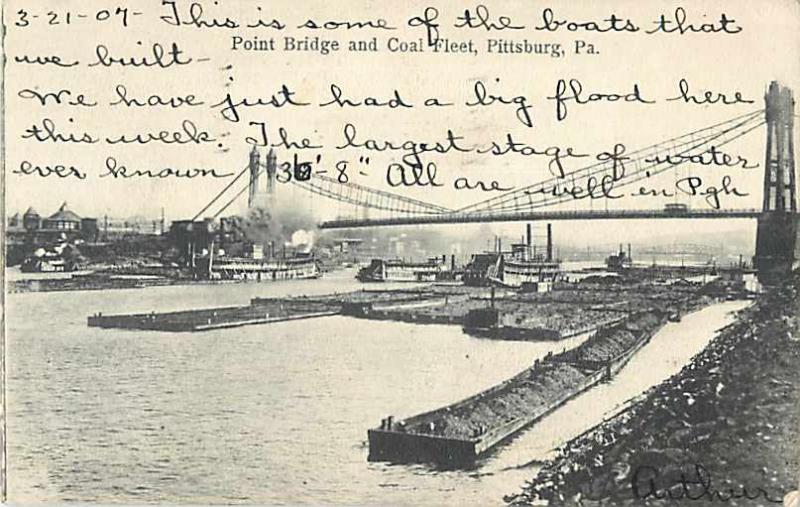 3-21-07- This is some of the boats that
Point Bridge and Coal Fleet, Pittsburg, Pa.
we built -
We have just had a big flood here
this week. The largest stage of water
ever known 36'-8" All are well in Pgh
Arthur